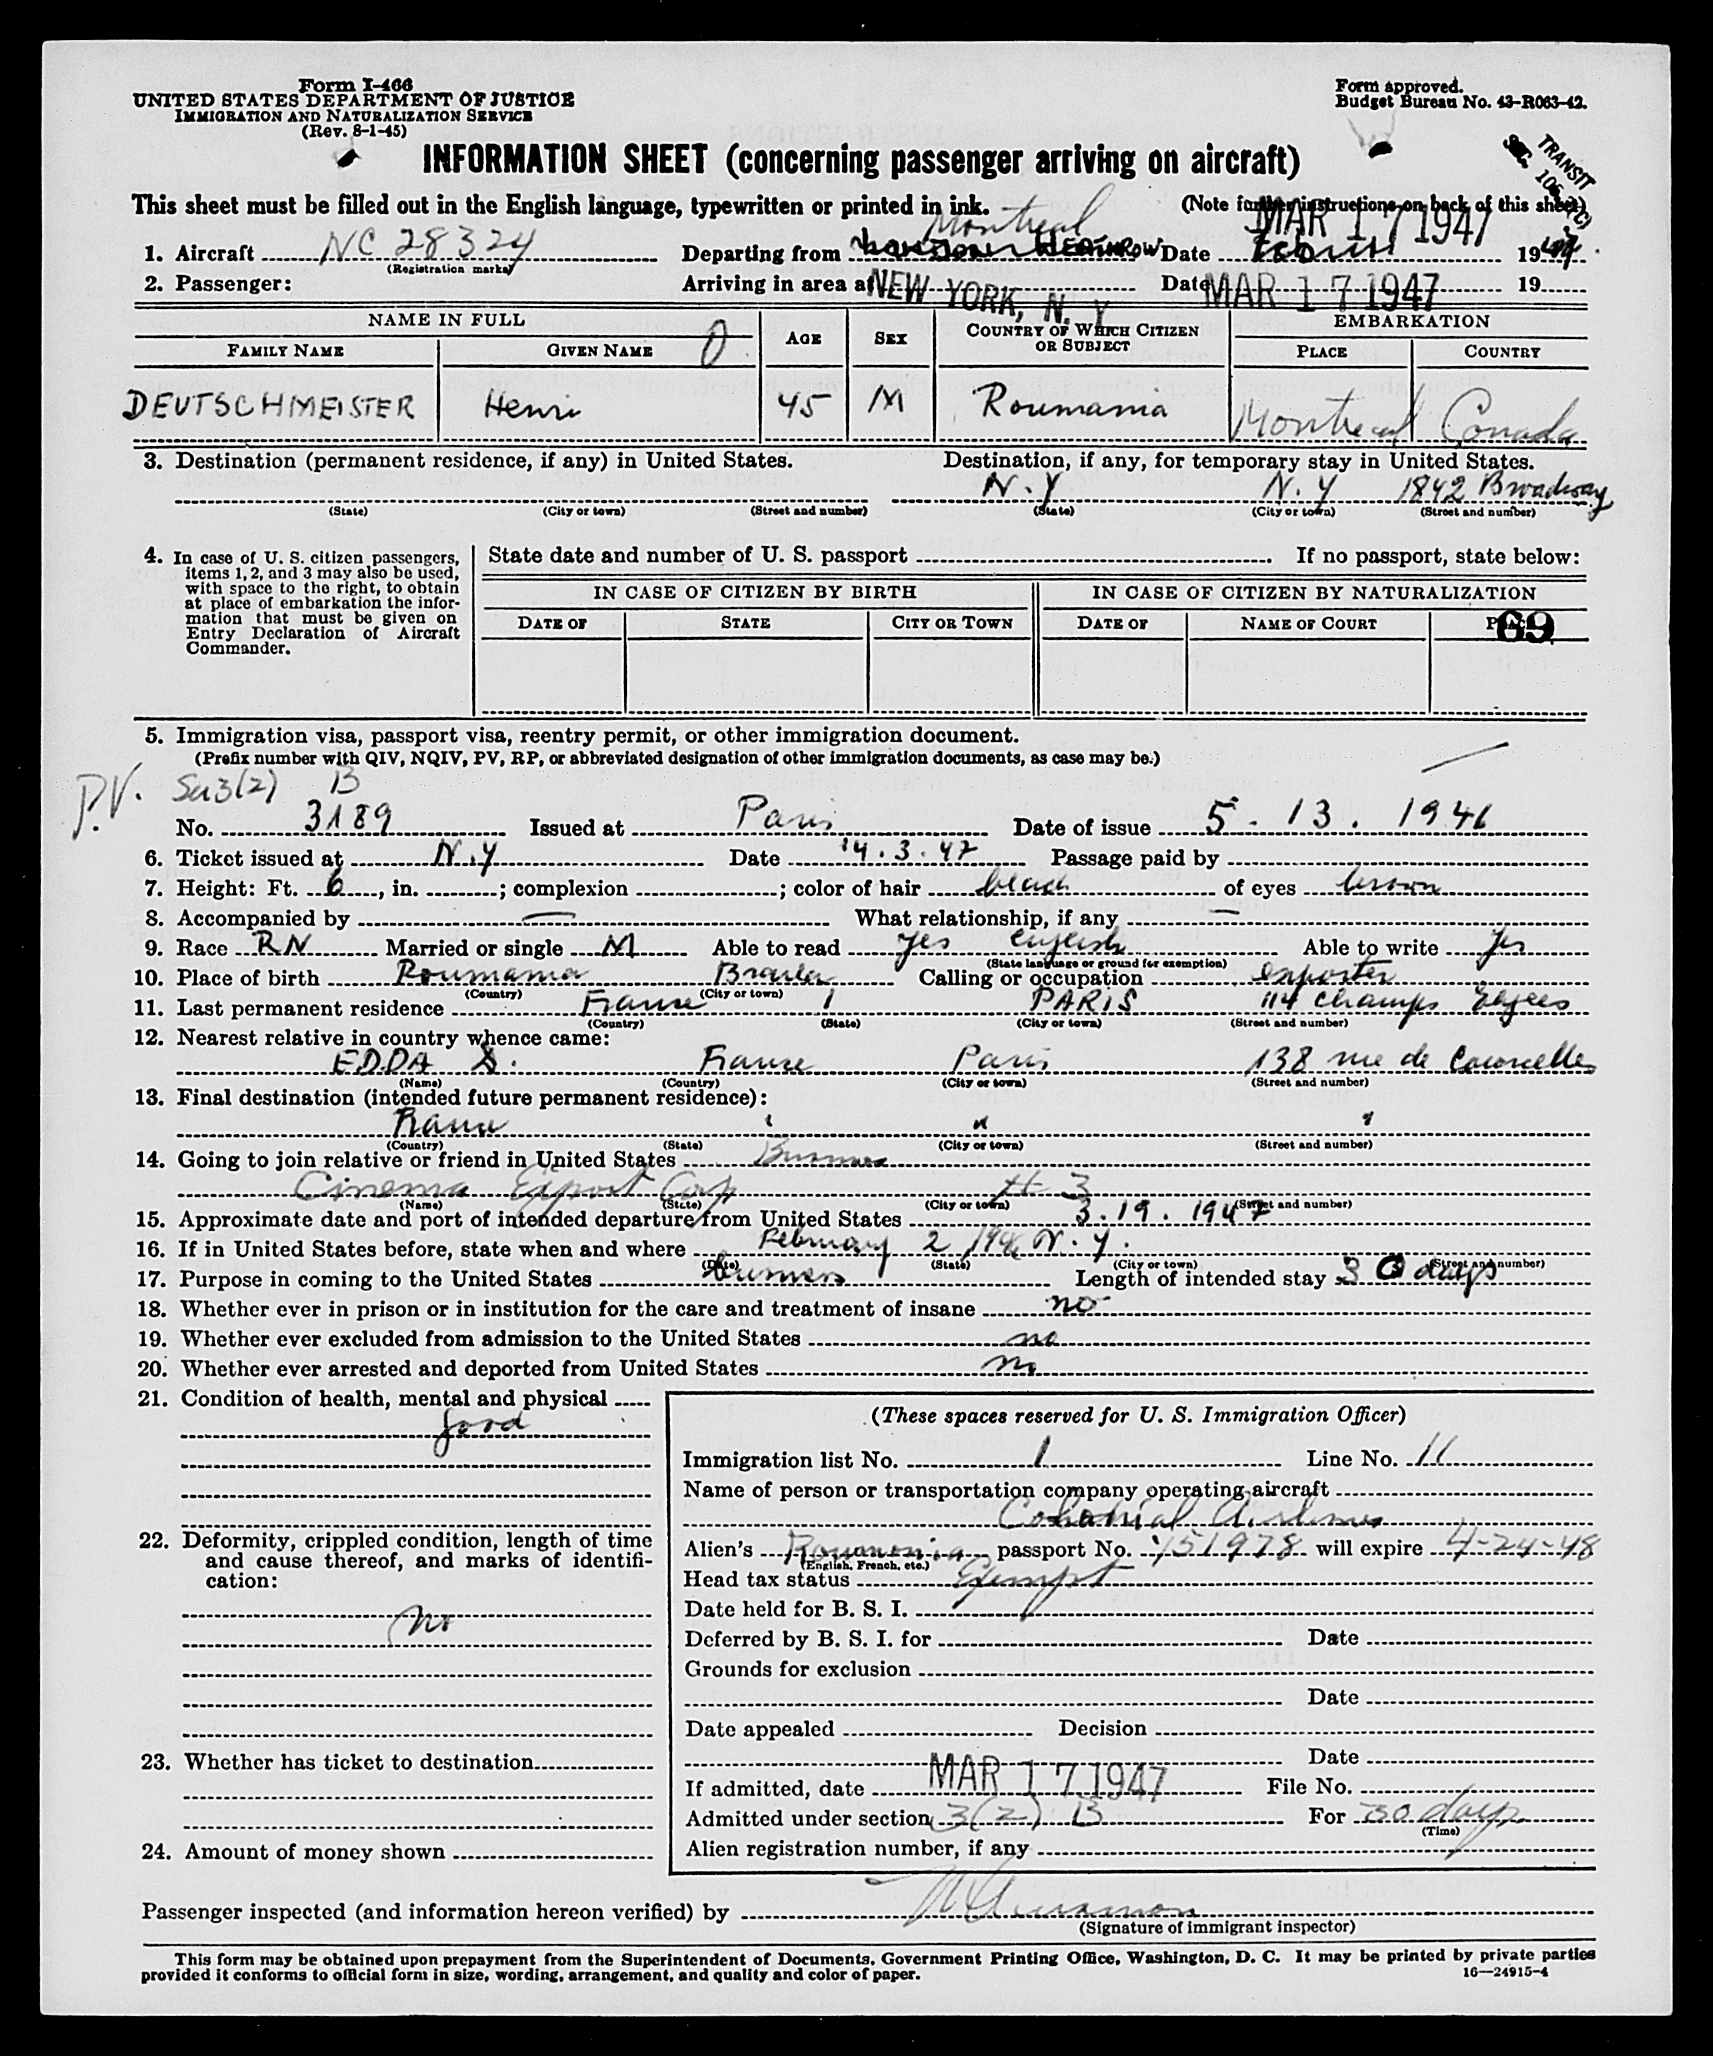 Form I-466
UNITED STATES DEPARTMENT OF JUSTICE
IMMIGRATION AND NATURALIZATION SERVICE
(Rev. 8-1-45)
Form approved.
Budget Bureau No. 43-R063-42.
TRANSIT
INFORMATION SHEET (concerning passenger arriving on aircraft)
This sheet must be filled out in the English language, typewritten or printed in ink.
(Note further instructions on back of this sheet)
Montreal
MAR 17 1947
1. Aircraft NC 28324 Departing from HEATHROW Date 19
(Registration marks)
2. Passenger: Arriving in area at NEW YORK, N. Y Date MAR 17 1947 19
NAME IN FULL AGE SEX COUNTRY OF WHICH CITIZEN OR SUBJECT EMBARKATION
FAMILY NAME GIVEN NAME PLACE COUNTRY
DEUTSCHMEISTER Henri 45 M Roumania Montreal Canada
3. Destination (permanent residence, if any) in United States. Destination, if any, for temporary stay in United States.
N.Y N.Y 1842 Broadway
(State) (City or town) (Street and number) (State) (City or town) (Street and number)
4. In case of U. S. citizen passengers, items 1, 2, and 3 may also be used, with space to the right, to obtain at place of embarkation the information that must be given on Entry Declaration of Aircraft Commander.
State date and number of U. S. passport If no passport, state below:
IN CASE OF CITIZEN BY BIRTH IN CASE OF CITIZEN BY NATURALIZATION
DATE OF STATE CITY OR TOWN DATE OF NAME OF COURT PLACE
69
5. Immigration visa, passport visa, reentry permit, or other immigration document.
(Prefix number with QIV, NQIV, PV, RP, or abbreviated designation of other immigration documents, as case may be.)
P.V. 3(2) B
No. 3189 Issued at Paris Date of issue 5. 13. 1946
6. Ticket issued at N.Y Date 14.3.47 Passage paid by
7. Height: Ft. 6, in. ; complexion ; color of hair black of eyes brown
8. Accompanied by — What relationship, if any —
9. Race RN Married or single M Able to read yes english Able to write yes
(State language or ground for exemption)
10. Place of birth Roumania Braila Calling or occupation exporter
(Country) (City or town)
11. Last permanent residence France PARIS 114 champs Elysees
(Country) (State) (City or town) (Street and number)
12. Nearest relative in country whence came:
EDDA D. France Paris 138 rue de Courcelles
(Name) (Country) (City or town) (Street and number)
13. Final destination (intended future permanent residence):
France
(Country) (State) (City or town) (Street and number)
14. Going to join relative or friend in United States Business
Cinema Export Corp # 3
(Name) (State) (City or town) (Street and number)
15. Approximate date and port of intended departure from United States 3.19.1947
16. If in United States before, state when and where February 2 1946 N.Y.
(Date) (State) (City or town) (Street and number)
17. Purpose in coming to the United States business Length of intended stay 30 days
18. Whether ever in prison or in institution for the care and treatment of insane no
19. Whether ever excluded from admission to the United States no
20. Whether ever arrested and deported from United States no
21. Condition of health, mental and physical
good
22. Deformity, crippled condition, length of time and cause thereof, and marks of identification:
no
23. Whether has ticket to destination
24. Amount of money shown
(These spaces reserved for U. S. Immigration Officer)
Immigration list No. 1 Line No. 11
Name of person or transportation company operating aircraft
Colonial Airlines
Alien's Roumania passport No. 151978 will expire 4-24-48
(English, French, etc.)
Head tax status Exempt
Date held for B. S. I.
Deferred by B. S. I. for Date
Grounds for exclusion
Date
Date appealed Decision
Date
If admitted, date MAR 17 1947 File No.
Admitted under section 3(2) B For 30 days
(Time)
Alien registration number, if any
Passenger inspected (and information hereon verified) by
(Signature of immigrant inspector)
This form may be obtained upon prepayment from the Superintendent of Documents, Government Printing Office, Washington, D. C. It may be printed by private parties
provided it conforms to official form in size, wording, arrangement, and quality and color of paper.
16—24915-4